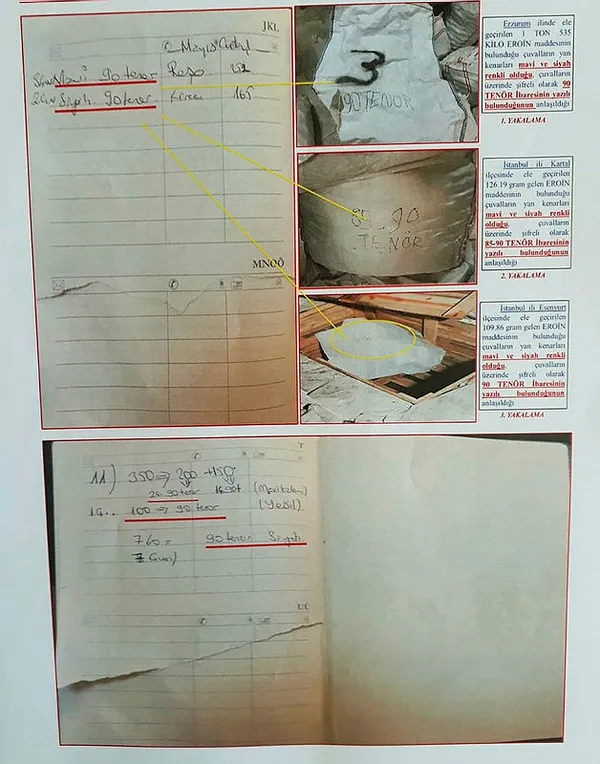 JKL
90 tenor
90 tenor
165
MNOÖ
3
90 TENÖR
85-90
TENÖR
Erzurum ilinde ele
geçirilen 1 TON 535
KİLO EROİN maddesinin
bulunduğu çuvalların yan
kenarları mavi ve siyah
renkli olduğu, çuvalların
üzerinde şifreli olarak 90
TENÖR İbaresinin yazılı
bulunduğunun anlaşıldığı
1. YAKALAMA
İstanbul ili Kartal
ilçesinde ele geçirilen
126.19 gram gelen EROİN
maddesinin bulunduğu
çuvalların yan kenarları
mavi ve siyah renkli
olduğu, çuvalların
üzerinde şifreli olarak
85-90 TENÖR İbaresinin
yazılı bulunduğunun
anlaşıldığı
2. YAKALAMA
İstanbul ili Esenyurt
ilçesinde ele geçirilen
109.86 gram gelen EROİN
maddesinin bulunduğu
çuvalların yan kenarları
mavi ve siyah renkli
olduğu, çuvalların
üzerinde şifreli olarak
90 TENÖR İbaresinin
yazılı bulunduğunun
anlaşıldığı
3. YAKALAMA
11) 350 => 200 +150
90 tenor
100 => 90 tenor (Yesil)
760 = 90 tenor Siyah
UÜ